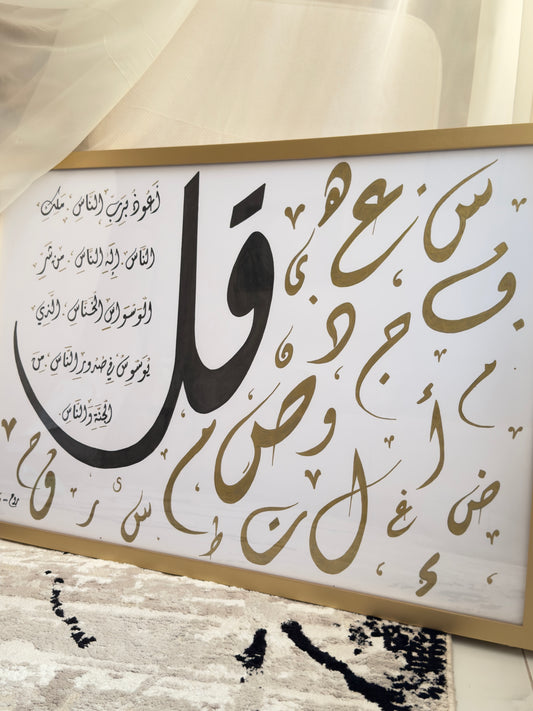 قل
أعُوذُ بِرَبِّ النَّاسِ . مَلِكِ
النَّاسِ إِلَهِ النَّاسِ . مِن شَرِّ
الْوَسْوَاسِ الْخَنَّاسِ . الَّذِي
يُوَسْوِسُ فِي صُدُورِ النَّاسِ مِنَ
الْجِنَّةِ وَالنَّاسِ .
س ع ه
و ي
ج ذ ن
م
أ و ص
ض غ ا ل ت م
ح و ر س ط ء